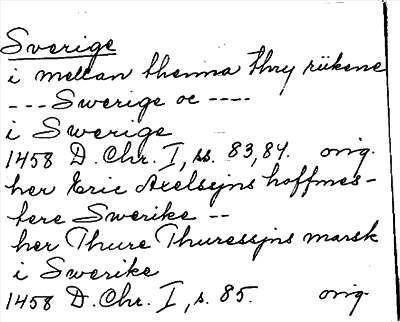 Sverige
i mellan thenna thry riikene
--- Swerige oc ----
i Swerige
1458 D. Chr. I, ss. 83, 84. orig.
her Eric Axelssjns hoffmes-
tere Swerike --
her Thure Thuressjns marsk
i Swerike
1458 D. Chr. I, s. 85. orig.